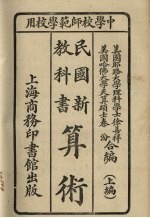 中學校師範學校用
美國耶路大學理科學士徐善祥
美國哈佛大學天算碩士秦汾
合編
(上編)
民國新
教科書
算術
上海商務印書館出版